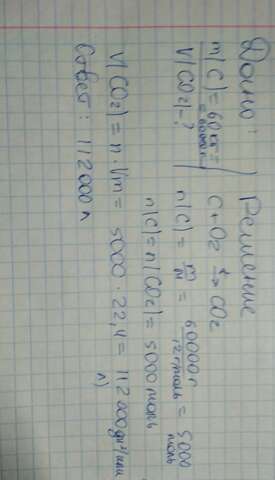 Дано: Решение
m(C) = 60 кг = 60000 г
C + O2 t→ CO2
V(CO2) - ?
n(C) = m/M = 60000 г / 12 г/моль = 5000 моль
n(C) = n(CO2) = 5000 моль
V(CO2) = n · Vm = 5000 · 22,4 = 112000 дм³ (или л)
Ответ: 112000 л